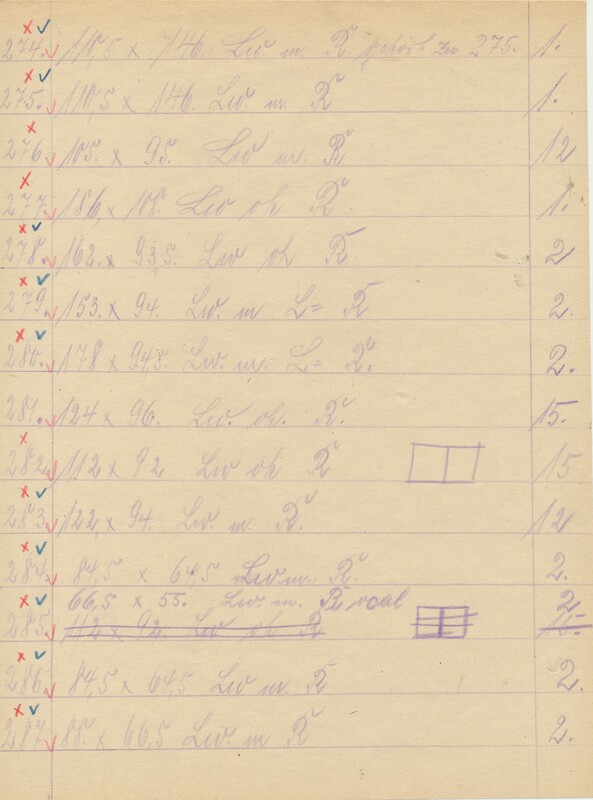 274. 110,5 x 146. Lw m. R. gehört zu 275. 1.
275. 110,5 x 146. Lw. m. R 1.
276 105. x 95. Lw m. R 12
277. 186, x 108. Lw oh R. 1.
278. 162. x 93,5. Lw oh R 2
279. 153. x 94. Lw. m L= R 2.
280. 178 x 94,5. Lw. m. L= R. 2.
281. 124 x 96. Lw. oh. R. 15.
282 112 x 92 Lw oh R 15
283. 122, x 94. Lw. m R. 12
284. 84,5 x 64,5 Lw. m. R. 2.
66,5 x 55. Lw. m. R oval 2
285. 112 x 92. Lw oh R 15.
286. 84,5 x 64,5 Lw m. R 2.
287. 88. x 66,5. Lw. m R 2.